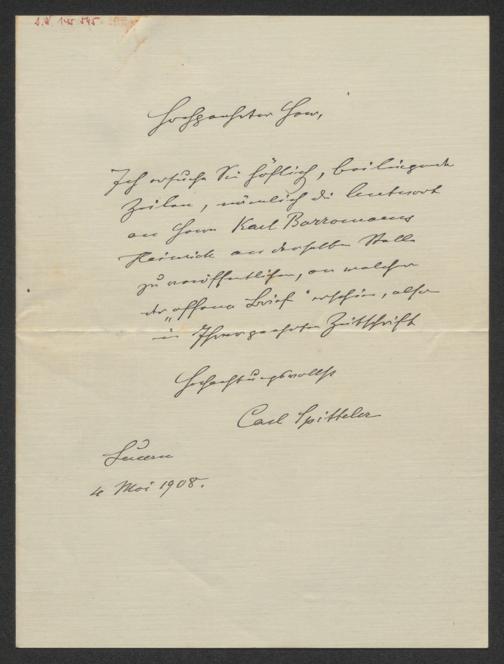 I.N. 145.545
Hochgeehrter Herr,
Ich ersuche Sie höflich, beiliegende
Zeilen, nämlich die Antwort
an Herrn Karl Borromaeus
Heinrich an derselben Stelle
zu veröffentlichen, an welcher
der „offene Brief" erschien, also
in Ihrer geehrten Zeitschrift
Hochachtungsvollst
Carl Spitteler
Luzern
4 Mai 1908.